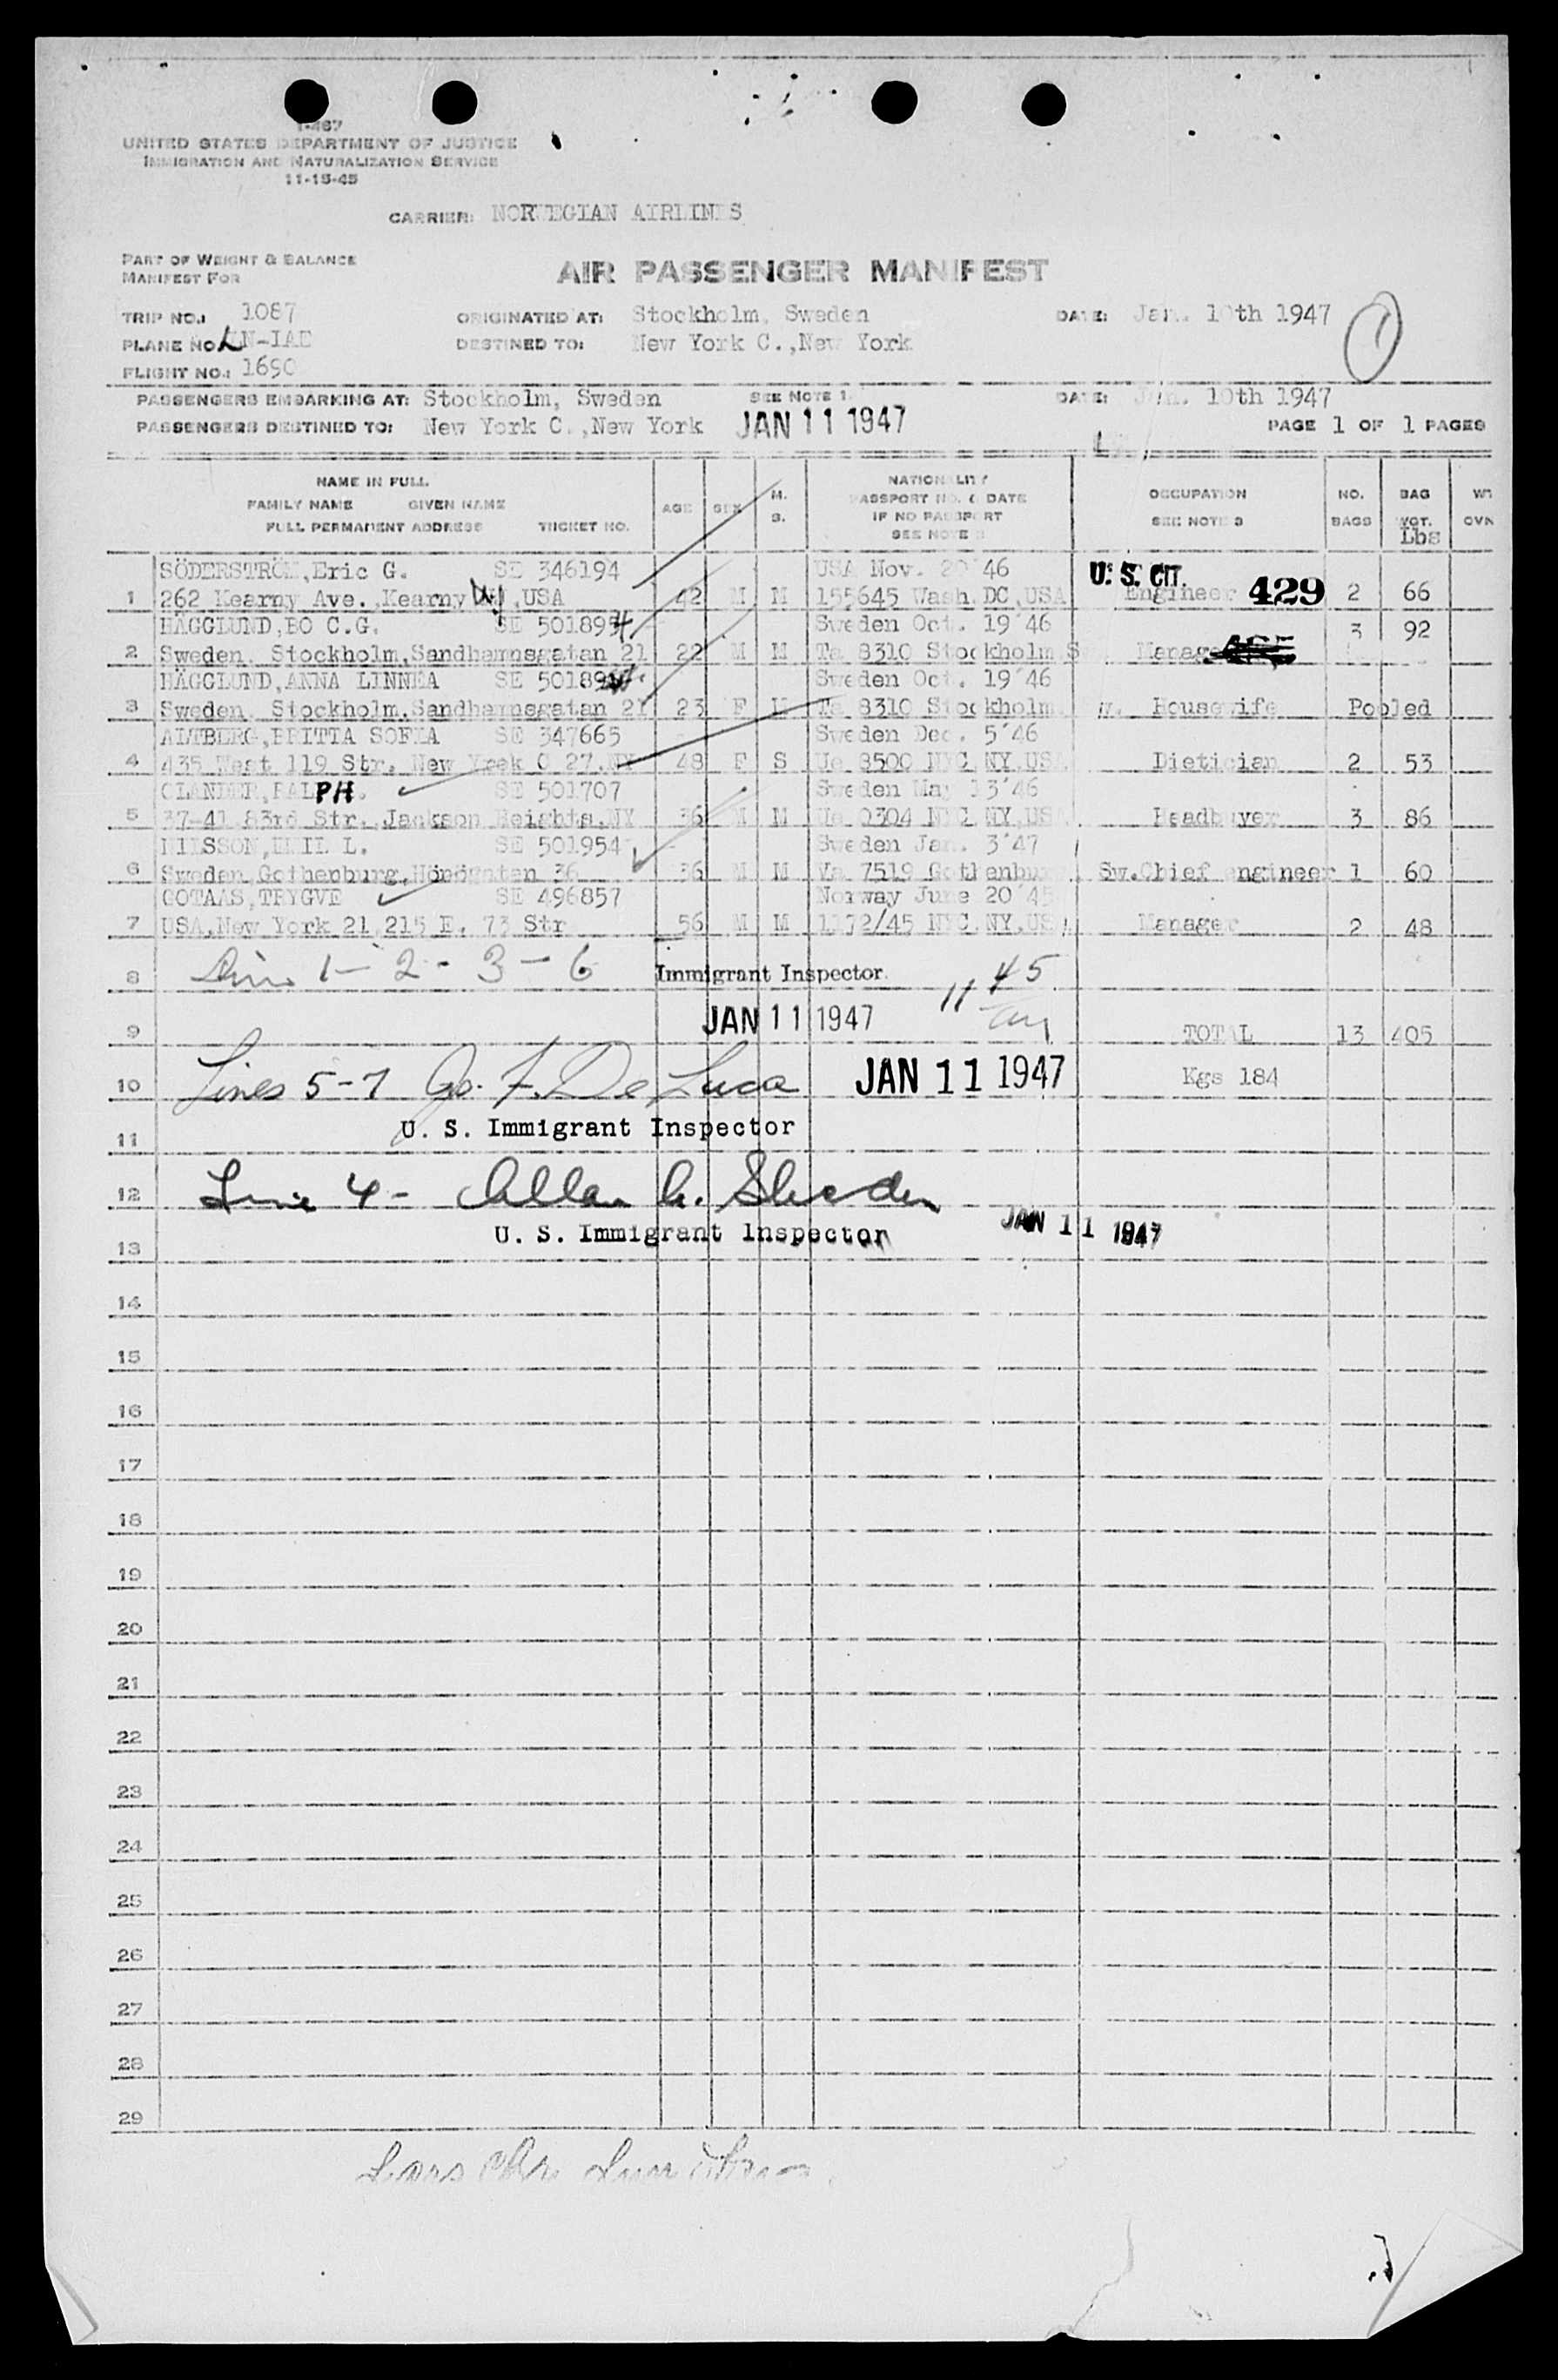 I-487
UNITED STATES DEPARTMENT OF JUSTICE
IMMIGRATION AND NATURALIZATION SERVICE
11-15-45
CARRIER: NORWEGIAN AIRLINES
PART OF WEIGHT & BALANCE
MANIFEST FOR
AIR PASSENGER MANIFEST
TRIP NO.: 1087 ORIGINATED AT: Stockholm, Sweden DATE: Jan. 10th 1947 1
PLANE NO. LN-IAE DESTINED TO: New York C.,New York
FLIGHT NO.: 1690
PASSENGERS EMBARKING AT: Stockholm, Sweden SEE NOTE 1. DATE: Jan. 10th 1947
PASSENGERS DESTINED TO: New York C.,New York JAN 11 1947 PAGE 1 OF 1 PAGES
NAME IN FULL
FAMILY NAME GIVEN NAME
FULL PERMANENT ADDRESS TICKET NO.
AGE SEX M. S.
NATIONALITY
PASSPORT NO. & DATE
IF NO PASSPORT
SEE NOTE
OCCUPATION
SEE NOTE 3
NO. BAGS
BAG WGT. Lbs
WT OVN
SÖDERSTRÖM,Eric G. SE 346194 USA Nov. 20'46 U.S. CIT.
1 262 Kearny Ave.,Kearny NJ,USA 42 M M 155645 Wash.DC,USA Engineer 429 2 66
HÄGGLUND,BO C.G. SE 501894 Sweden Oct. 19'46 3 92
2 Sweden, Stockholm,Sandhamnsgatan 21 22 M M Ta 8310 Stockholm S Manager
HÄGGLUND,ANNA LINNEA SE 50189 Sweden Oct. 19'46
3 Sweden, Stockholm,Sandhamnsgatan 21 23 F M Ta 8310 Stockholm Housewife Pooled
ALTBERG,BRITTA SOFIA SE 347665 Sweden Dec. 5'46
4 435 West 119 Str. New Yrok C 27.NY 48 F S Ue 8500 NYC,NY,USA Dietician 2 53
OLANDER,RALPH . SE 501707 Sweden May 13'46
5 37-41 83rd Str.,Jackson Heights,NY 36 M M Ue 0304 NYC,NY,USA Headbuyer 3 86
NILSSON,EMIL L. SE 501954 Sweden Jan. 3'47
6 Sweden,Gothenburg, 36 36 M M Va 7519 Gothenburg Sw.Chief engineer 1 60
GOTAAS,TRYGVE SE 496857 Norway June 20'45
7 USA,New York 21,215 E. 73 Str 56 M M 1172/45 NYC,NY,USA Manager 2 48
8 1 - 2 - 3 - 6 Immigrant Inspector 11 45
9 JAN 11 1947 TOTAL 13 405
10 Lines 5-7 Jos. F. De Luca JAN 11 1947 Kgs 184
11 U. S. Immigrant Inspector
12 Line 4 - Allan
13 U. S. Immigrant Inspector JAN 11 1947
14
15
16
17
18
19
20
21
22
23
24
25
26
27
28
29
Lars Chr.